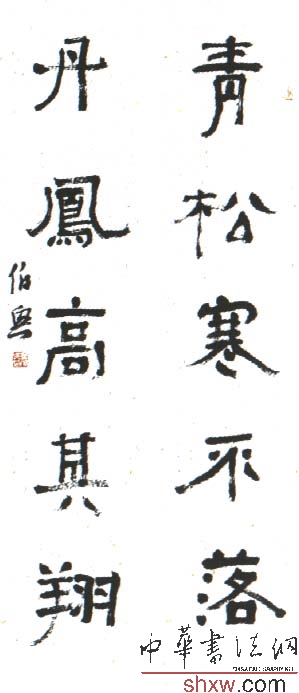 青松寒不落
丹鳳高其翔
伯與
中华书法网
shxw.com